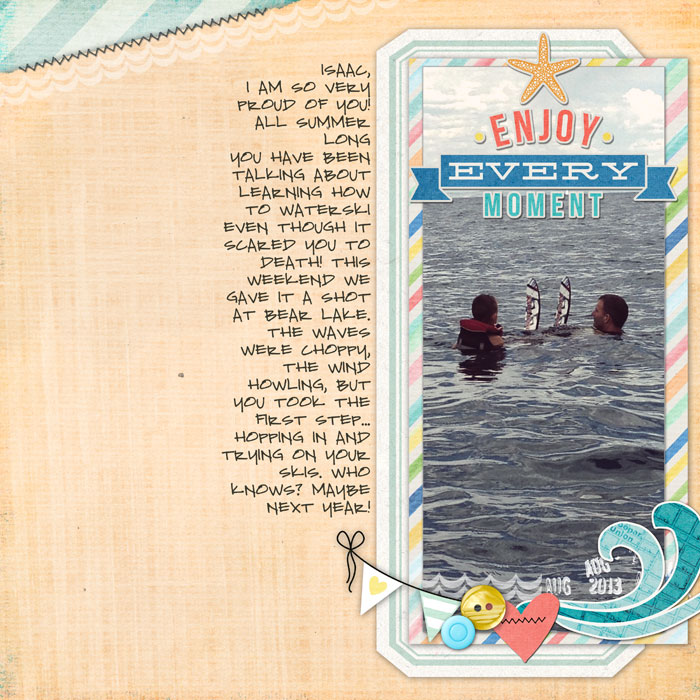 ISAAC,
I AM SO VERY
PROUD OF YOU!
ALL SUMMER
LONG
YOU HAVE BEEN
TALKING ABOUT
LEARNING HOW
TO WATERSKI
EVEN THOUGH IT
SCARED YOU TO
DEATH! THIS
WEEKEND WE
GAVE IT A SHOT
AT BEAR LAKE.
THE WAVES
WERE CHOPPY,
THE WIND
HOWLING, BUT
YOU TOOK THE
FIRST STEP...
HOPPING IN AND
TRYING ON YOUR
SKIS. WHO
KNOWS? MAYBE
NEXT YEAR!
ENJOY
EVERY
MOMENT
AUG
AUG 2013